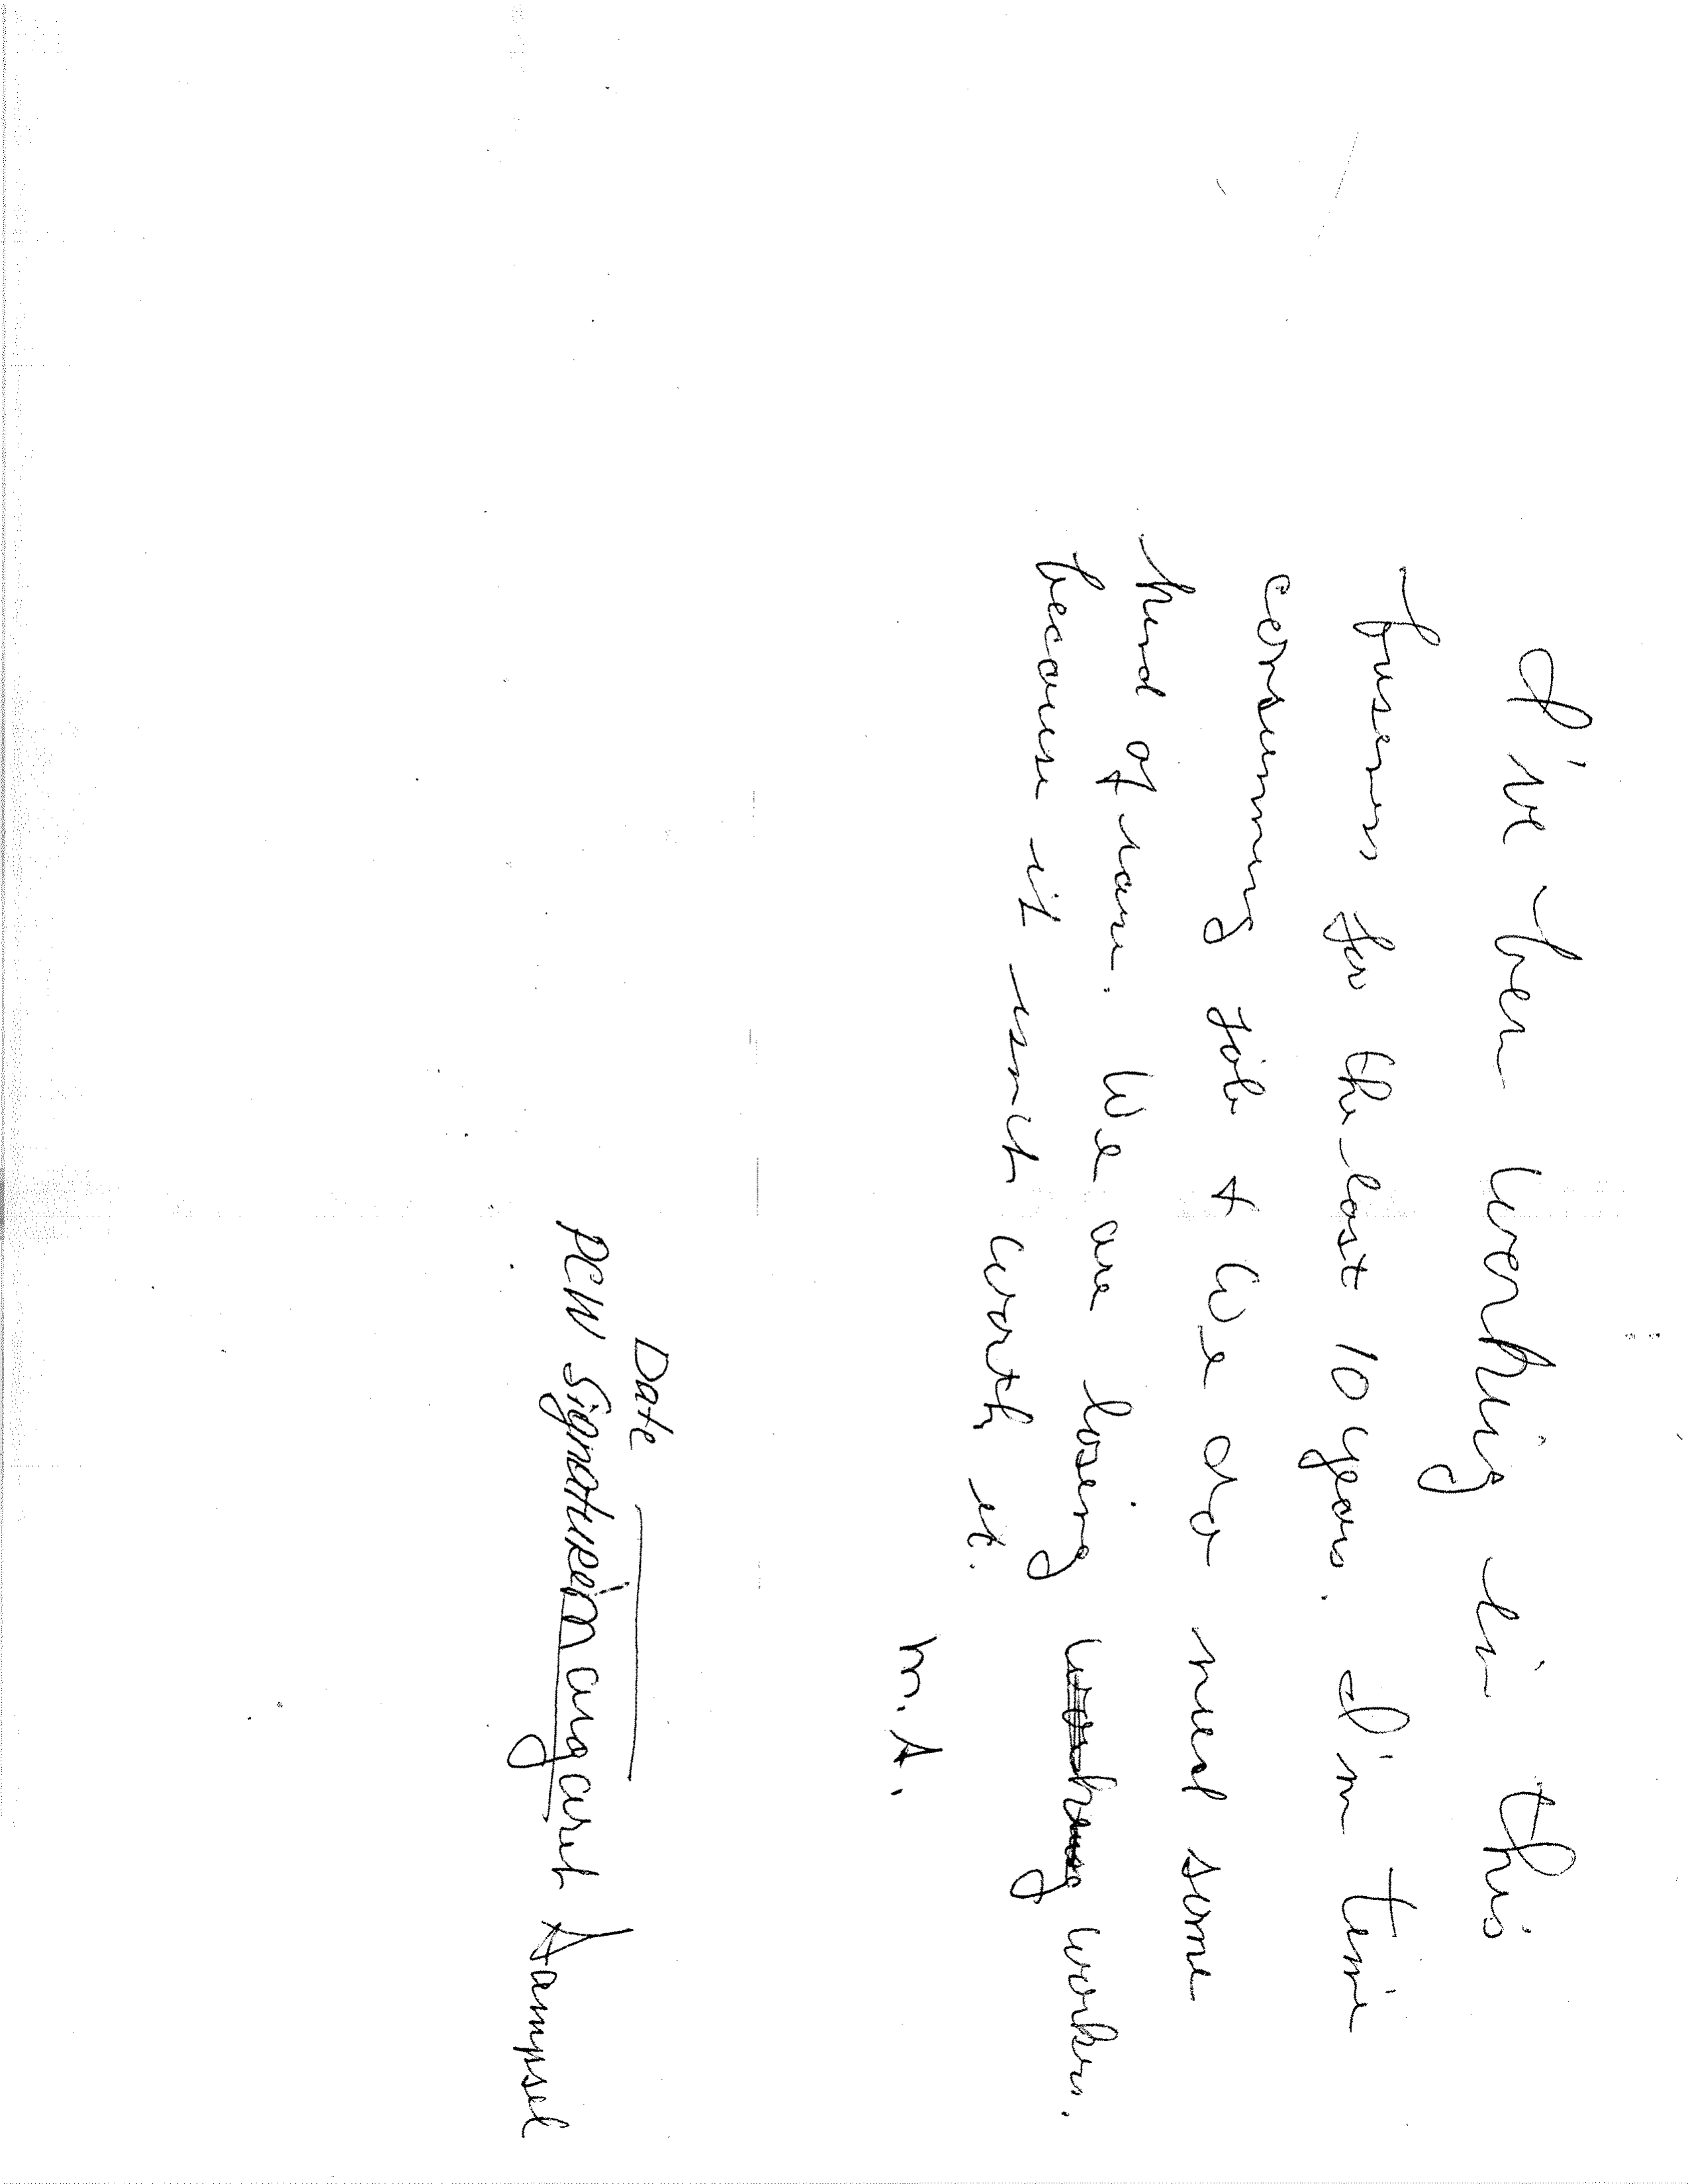 I've been working in this
business for the last 10 years. I'm time
consumming job & We do need some
kind of raise. We are losing workers.
because it isn't worth it.
M. S.
Date
PCW Signature Margaret Sampsel